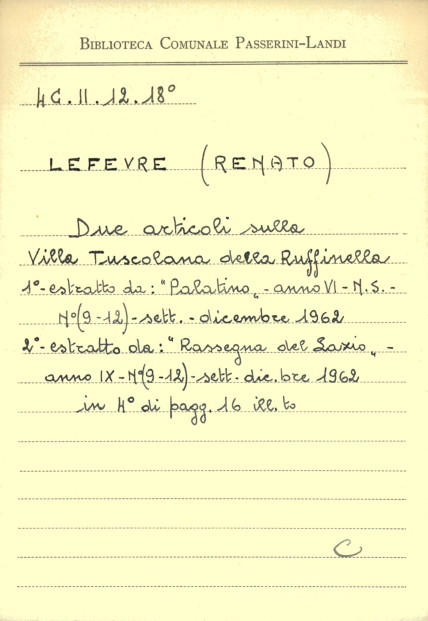 BIBLIOTECA COMUNALE PASSERINI-LANDI
4G.II.12.18°
LEFEVRE (RENATO)
Due articoli sulla
Villa Tuscolana della Ruffinella
1°-estratto da: "Palatino„ - anno VI - N.S. -
N°(9-12)-sett. - dicembre 1962
2°-estratto da: "Rassegna del Lazio„ -
anno IX - N°(9-12)-sett-dic.bre 1962
in 4° di pagg. 16 ill.to
C